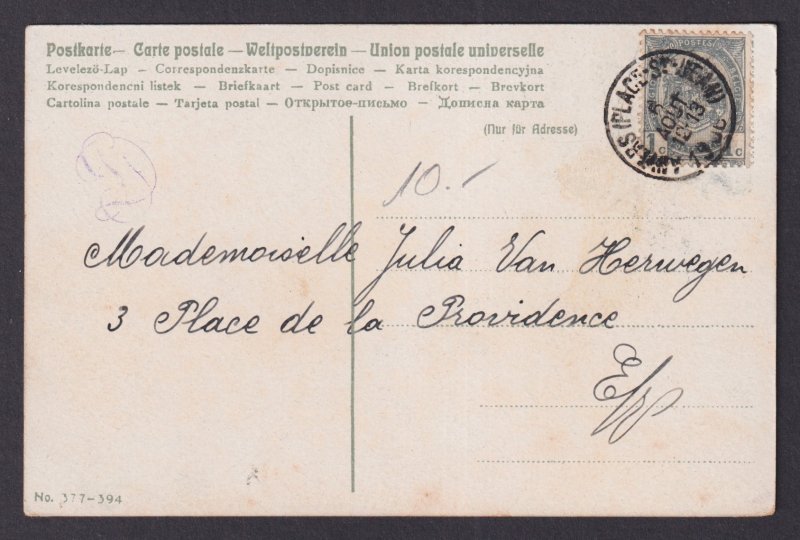 Postkarte — Carte postale — Weltpostverein — Union postale universelle
Levelezö-Lap — Correspondenzkarte — Dopisnice — Karta korespondencyjna
Korespondencni listek — Briefkaart — Post card — Brefkort — Brevkort
Cartolina postale — Tarjeta postal — Открытое-письмо — Дописна карта
(Nur für Adresse)
POSTES
(PLACE ST-JEAN)
AOUT
13
1c 1c
10.-
Mademoiselle Julia Van Herwegen
3 Place de la Providence
No. 377-394